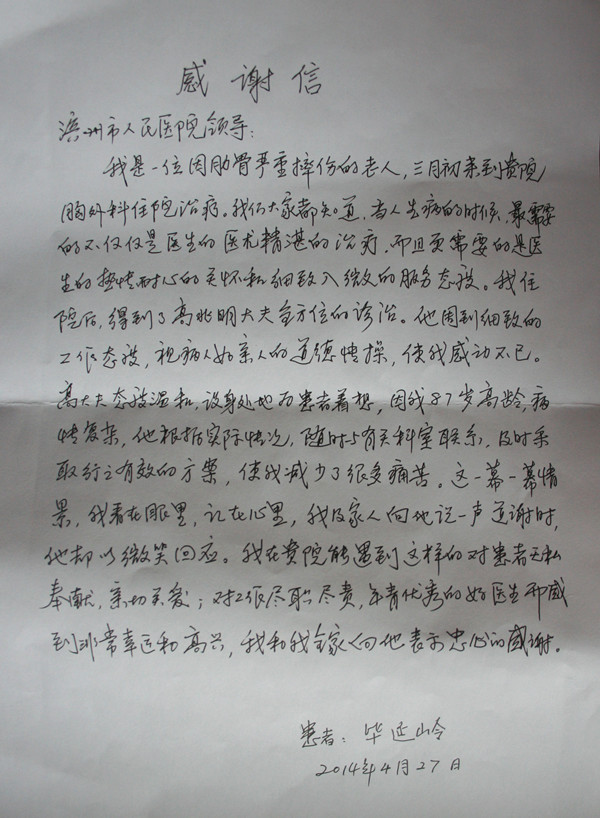 感谢信
滨州市人民医院领导：
我是一位因肋骨严重摔伤的老人，三月初来到贵院
胸外科住院治疗。我们大家都知道，当人生病的时候，最需要
的不仅仅是医生的医术精湛的治疗，而且更需要的是医
生的热情耐心的关怀和细致入微的服务态度。我住
院后，得到了高兆明大夫全方位的诊治。他周到细致的
工作态度，视病人如亲人的道德情操，使我感动不已。
高大夫态度温和，设身处地为患者着想，因我87岁高龄，病
情复杂，他根据实际情况，随时与有关科室联系，及时采
取行之有效的方案，使我减少了很多痛苦。这一幕一幕情
景，我看在眼里，记在心里，我及家人向他说一声道谢时，
他却以微笑回应。我在贵院能遇到这样的对患者无私
奉献，亲切关爱；对工作尽职尽责，年青优秀的好医生而感
到非常幸运和高兴，我和我全家人向他表示忠心的感谢。
患者：毕延岭
2014年4月27日